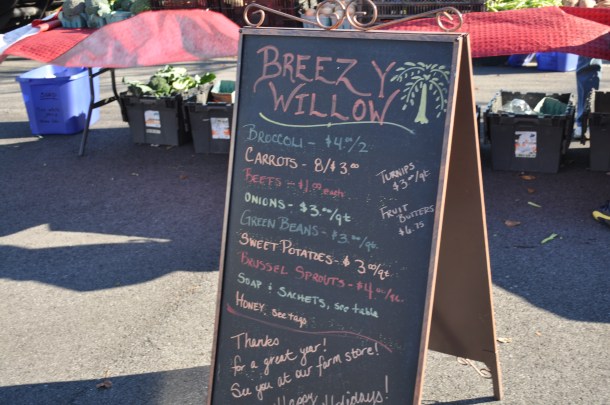 BREEZY
WILLOW
BROCCOLI - $4.00/2
CARROTS - 8/$3.00
BEETS - $1.00 each
ONIONS - $3.00/qt.
GREEN BEANS - $3.00/qt.
SWEET POTATOES - $3.00/qt.
BRUSSEL SPROUTS - $4.00/
SOAP & SACHETS, see table
HONEY, see tags
TURNIPS
$3.00/qt.
FRUIT BUTTERS
$6.75
Thanks
for a great year!
See you at our farm store!
Happy Holidays!